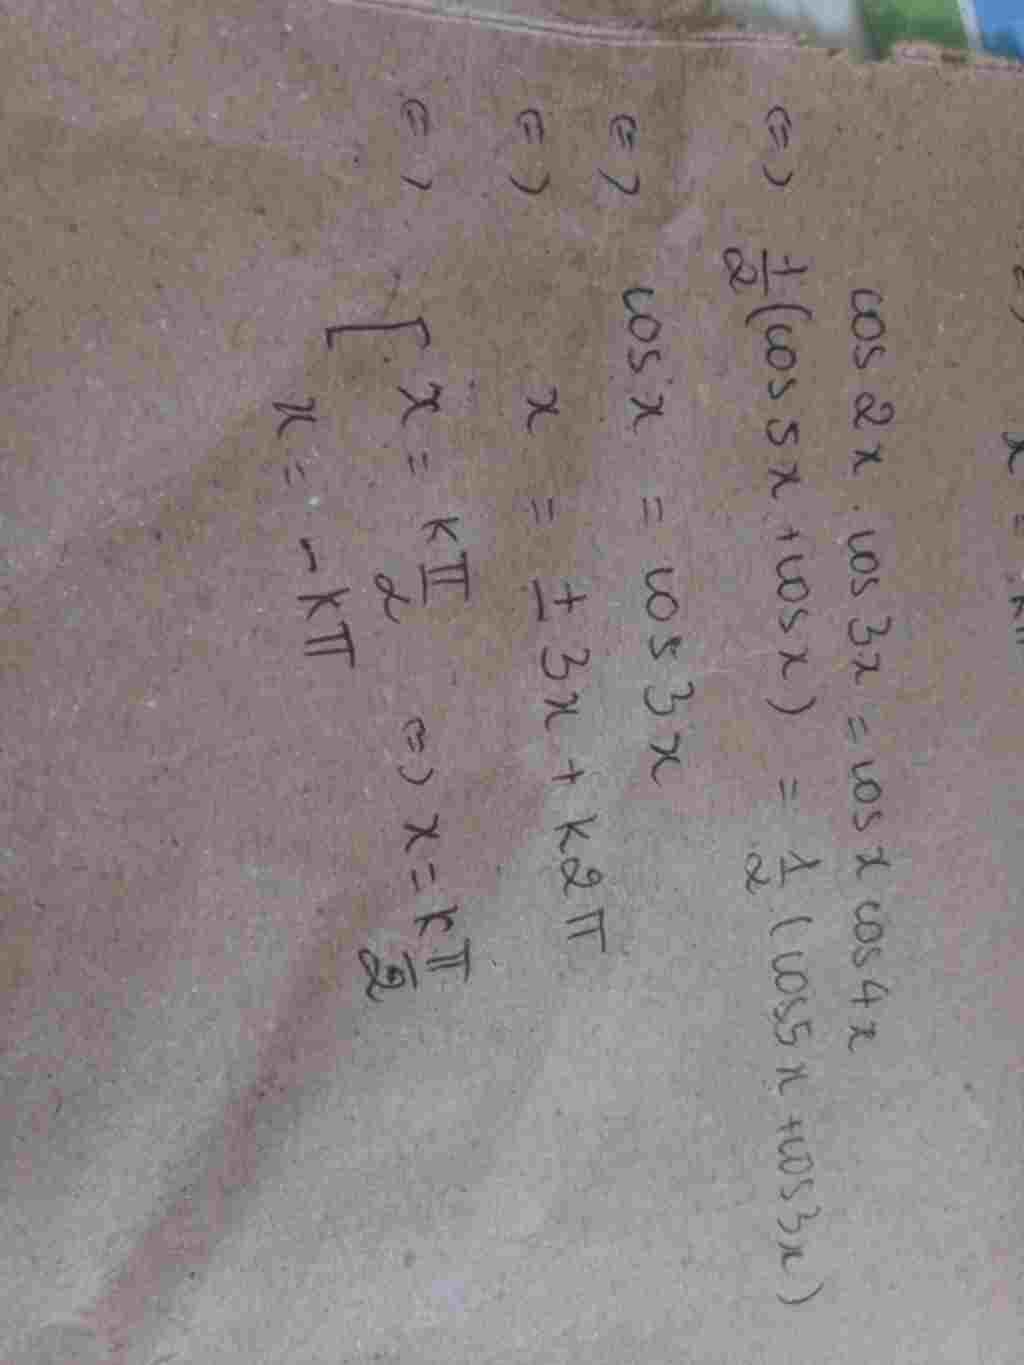 cos 2x . cos 3x = cos x cos 4x
⇔ 1/2 (cos 5x + cos x) = 1/2 (cos 5x + cos 3x)
⇔ cos x = cos 3x
⇔ x = ± 3x + k2π
⇔ [ x = kπ/2 ⇔ x = kπ/2
x = -kπ